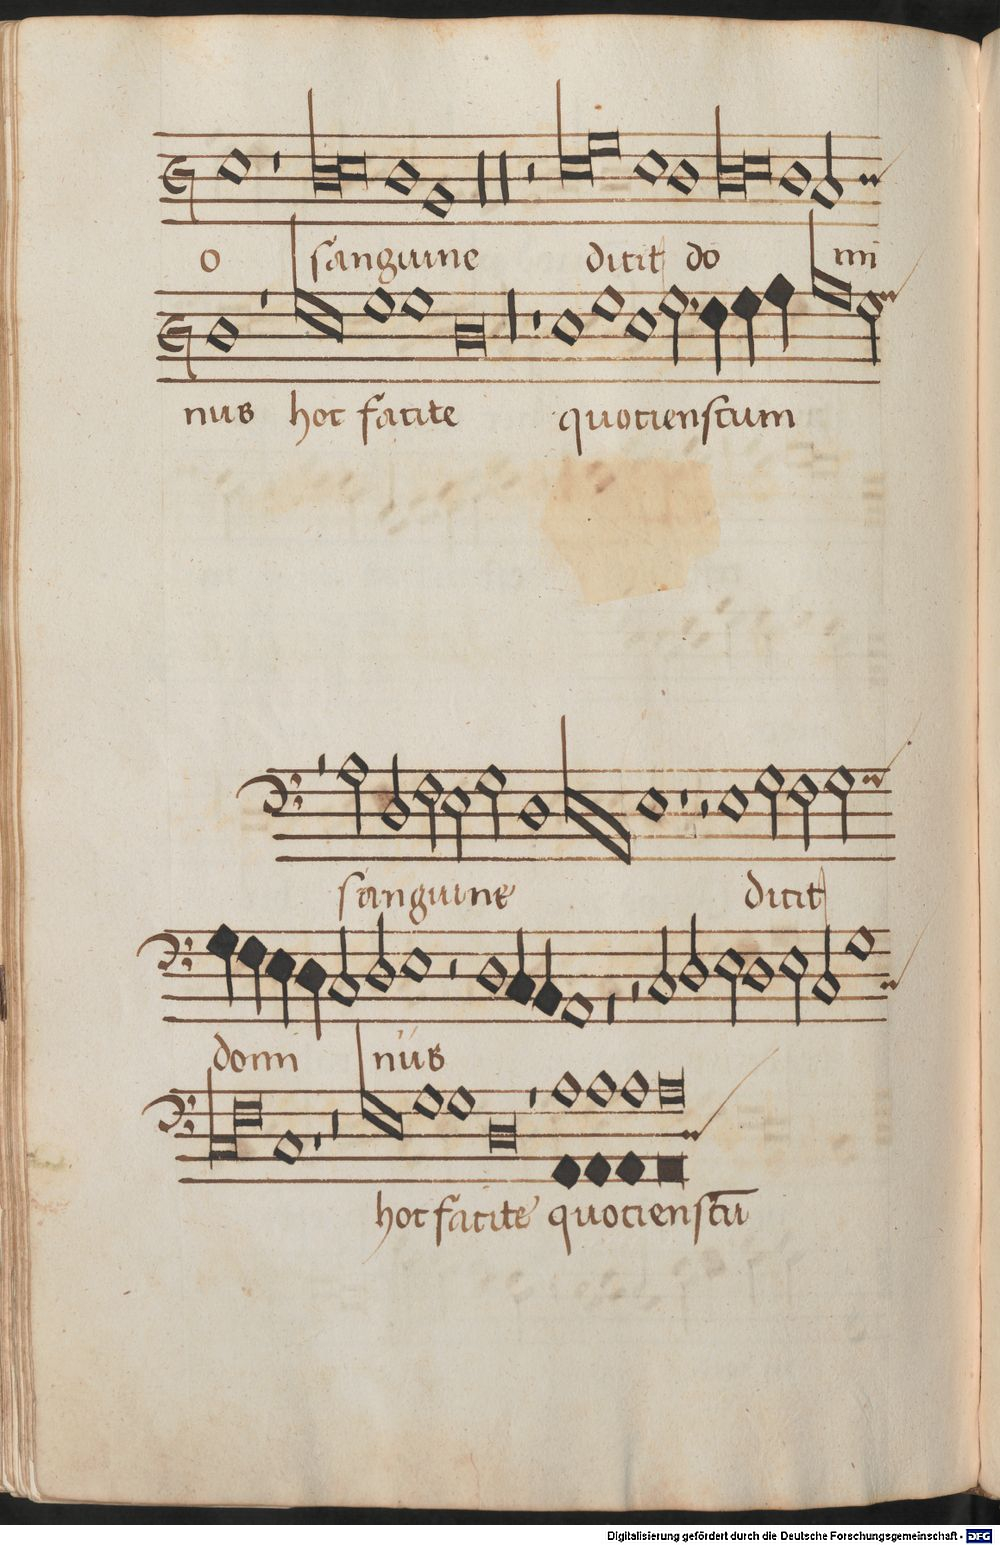 o sanguine dicit do mi
nus hoc facite quocienscum
sanguine dicit
domi nus
hoc facite quocienscū
Digitalisierung gefördert durch die Deutsche Forschungsgemeinschaft - DFG